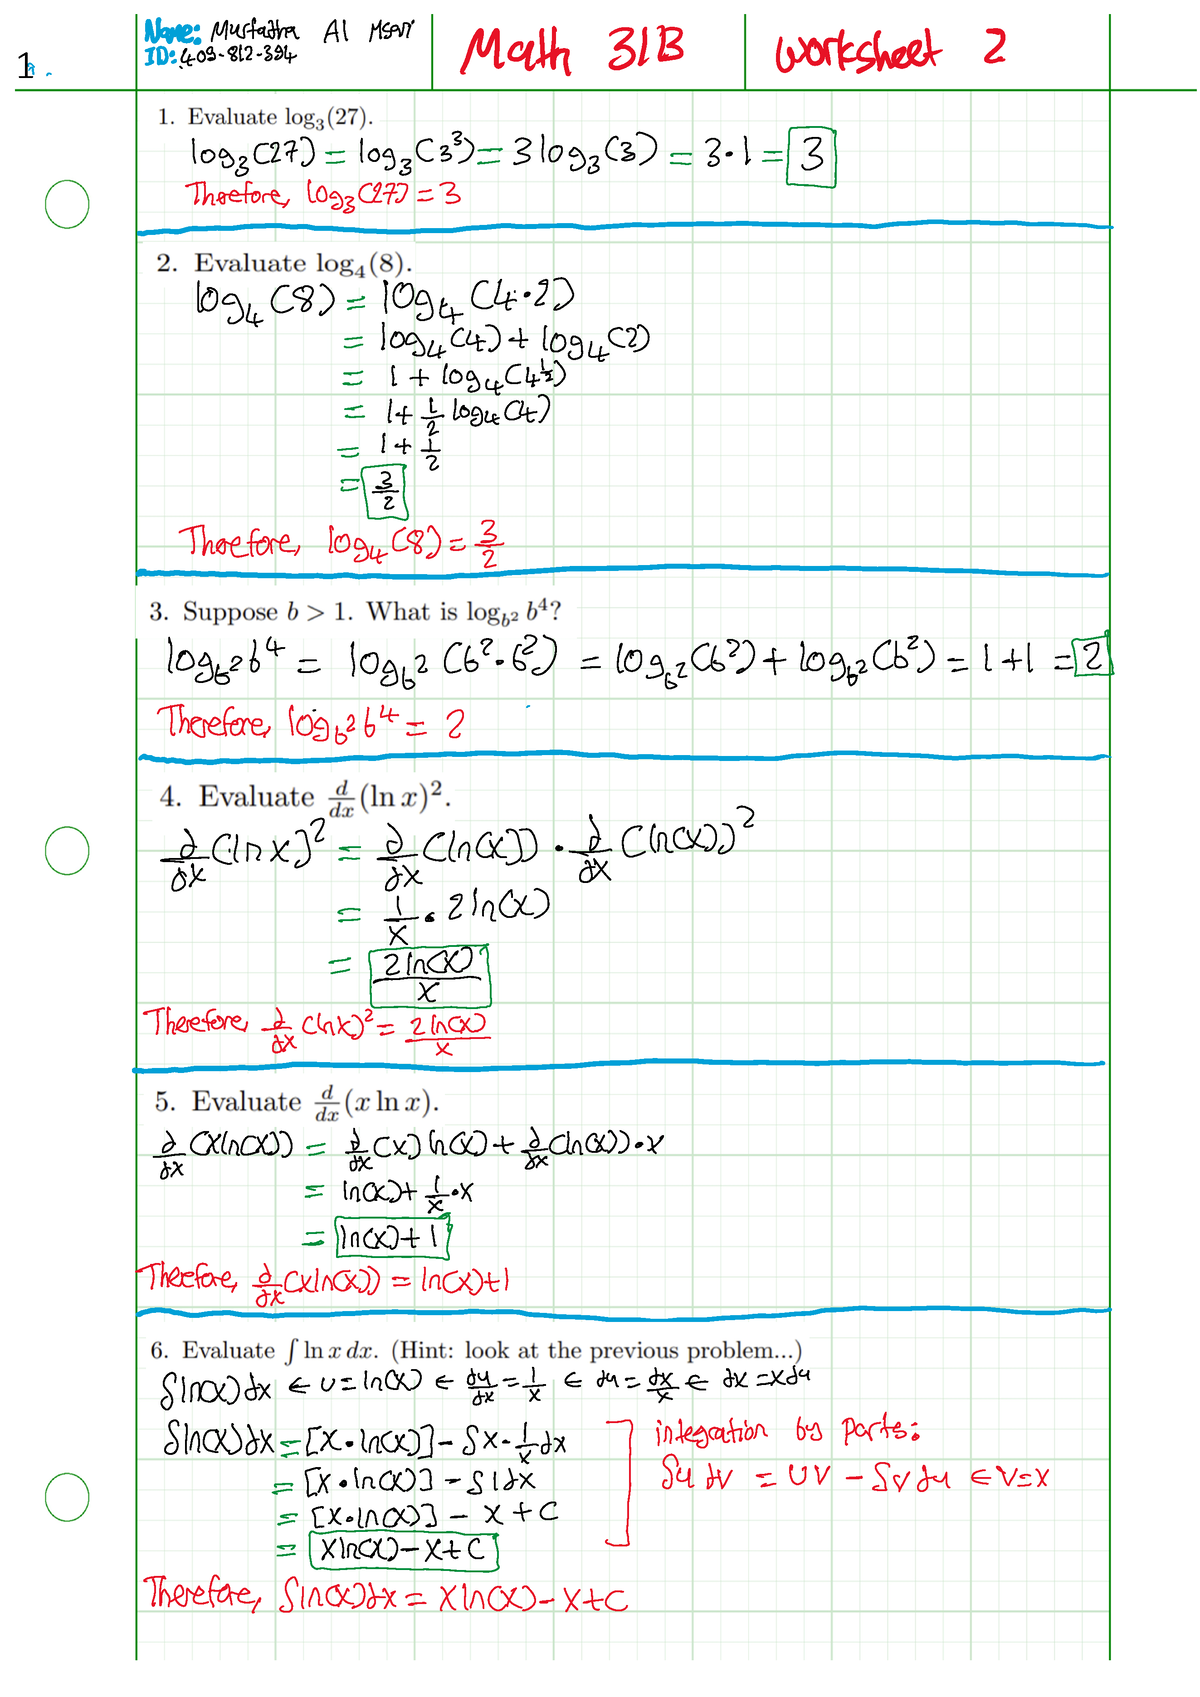 1.
Name: Mustadha Al Msari
ID: 409-812-394
Math 31B
worksheet 2
1. Evaluate log₃(27).
log₃(27) = log₃(3³) = 3log₃(3) = 3·1 = 3
Therefore, log₃(27) = 3
2. Evaluate log₄(8).
log₄(8) = log₄(4·2)
= log₄(4) + log₄(2)
= 1 + log₄(4^½)
= 1 + 1/2 log₄(4)
= 1 + 1/2
= 3/2
Therefore, log₄(8) = 3/2
3. Suppose b > 1. What is log_b² b⁴?
log_b² b⁴ = log_b² (b²·b²) = log_b² (b²) + log_b² (b²) = 1+1 = 2
Therefore, log_b² b⁴ = 2
4. Evaluate d/dx (ln x)².
d/dx (ln x)² = d/dx (ln(x)) · d/dx (ln(x))²
= 1/x · 2ln(x)
= 2ln(x)/x
Therefore, d/dx (lnx)² = 2ln(x)/x
5. Evaluate d/dx (x ln x).
d/dx (xln(x)) = d/dx (x) ln(x) + d/dx (ln(x))·x
= ln(x) + 1/x · x
= ln(x)+1
Therefore, d/dx (xln(x)) = ln(x)+1
6. Evaluate ∫ ln x dx. (Hint: look at the previous problem...)
∫ln(x)dx ∈ u = ln(x) ∈ du/dx = 1/x ∈ du = dx/x ∈ dx = xdu
∫ln(x)dx = [x·ln(x)] - ∫x·1/x dx
= [x·ln(x)] - ∫1dx
= [x·ln(x)] - x + C
= xln(x)-x+C
integration by parts:
∫u dv = uv - ∫v du ∈ v=x
Therefore, ∫ln(x)dx = xln(x)-x+C